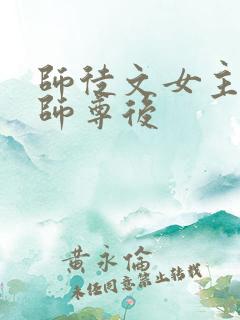 師徒文女主
師尊後
黃永倫
未经同意禁止转载